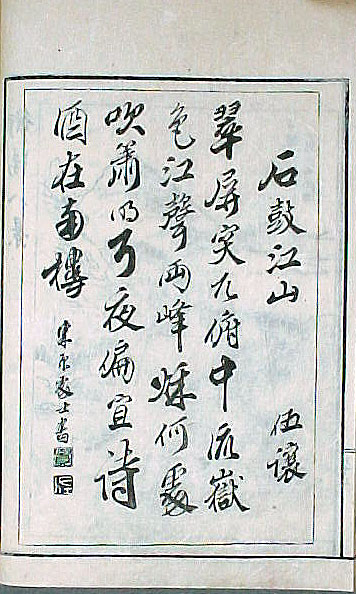 石鼓江山 伍讓
翠屏突兀俯中流嶽
色江聲两峰秌何處
吹簫明月夜偏宜詩
酒在南樓
士書